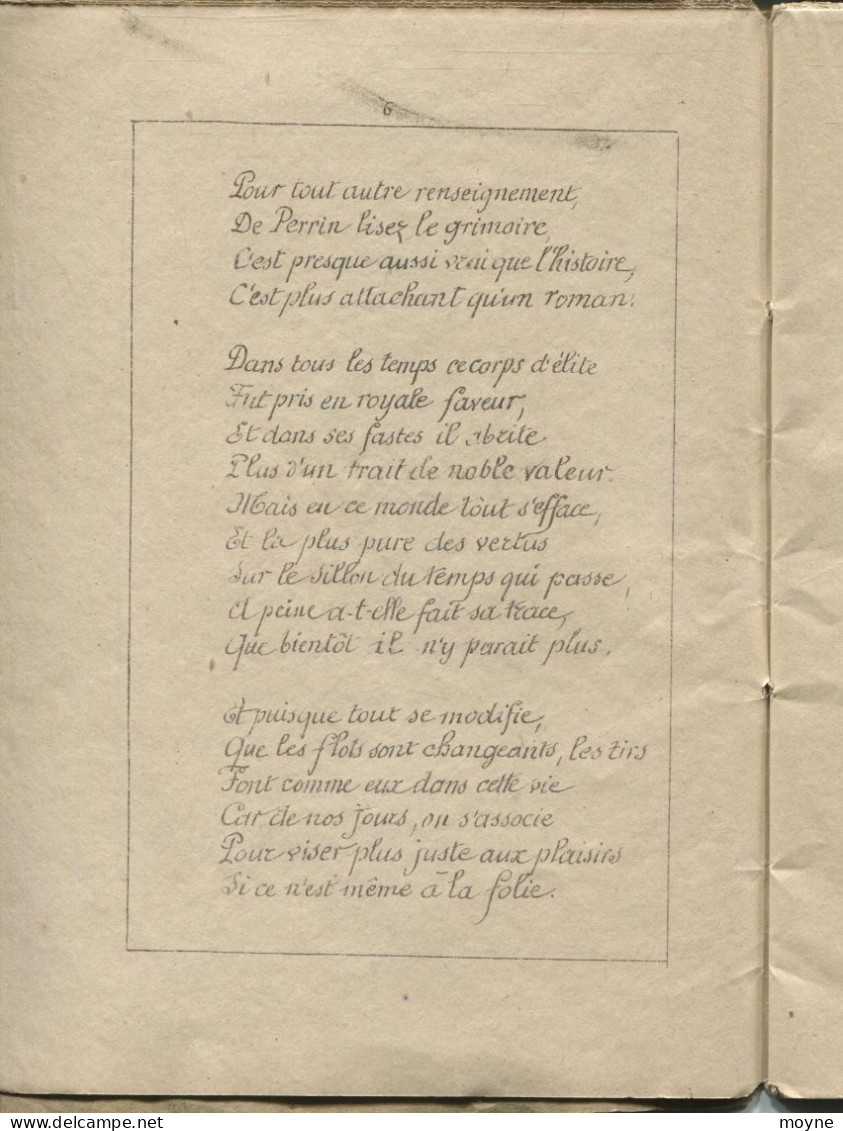 6
Pour tout autre renseignement,
De Perrin lisez le grimoire,
C'est presque aussi vrai que l'histoire,
C'est plus attachant qu'un roman.
Dans tous les temps ce corps d'élite
Fut pris en royale faveur,
Et dans ses fastes il abrite
Plus d'un trait de noble valeur.
Mais en ce monde tout s'efface,
Et la plus pure des vertus
Sur le sillon du temps qui passe,
A peine a-t-elle fait sa trace,
Que bientôt il n'y parait plus.
Et puisque tout se modifie,
Que les flots sont changeants, les tirs
Font comme eux dans cette vie
Car de nos jours, on s'associe
Pour viser plus juste aux plaisirs
Si ce n'est même à la folie.
moyne